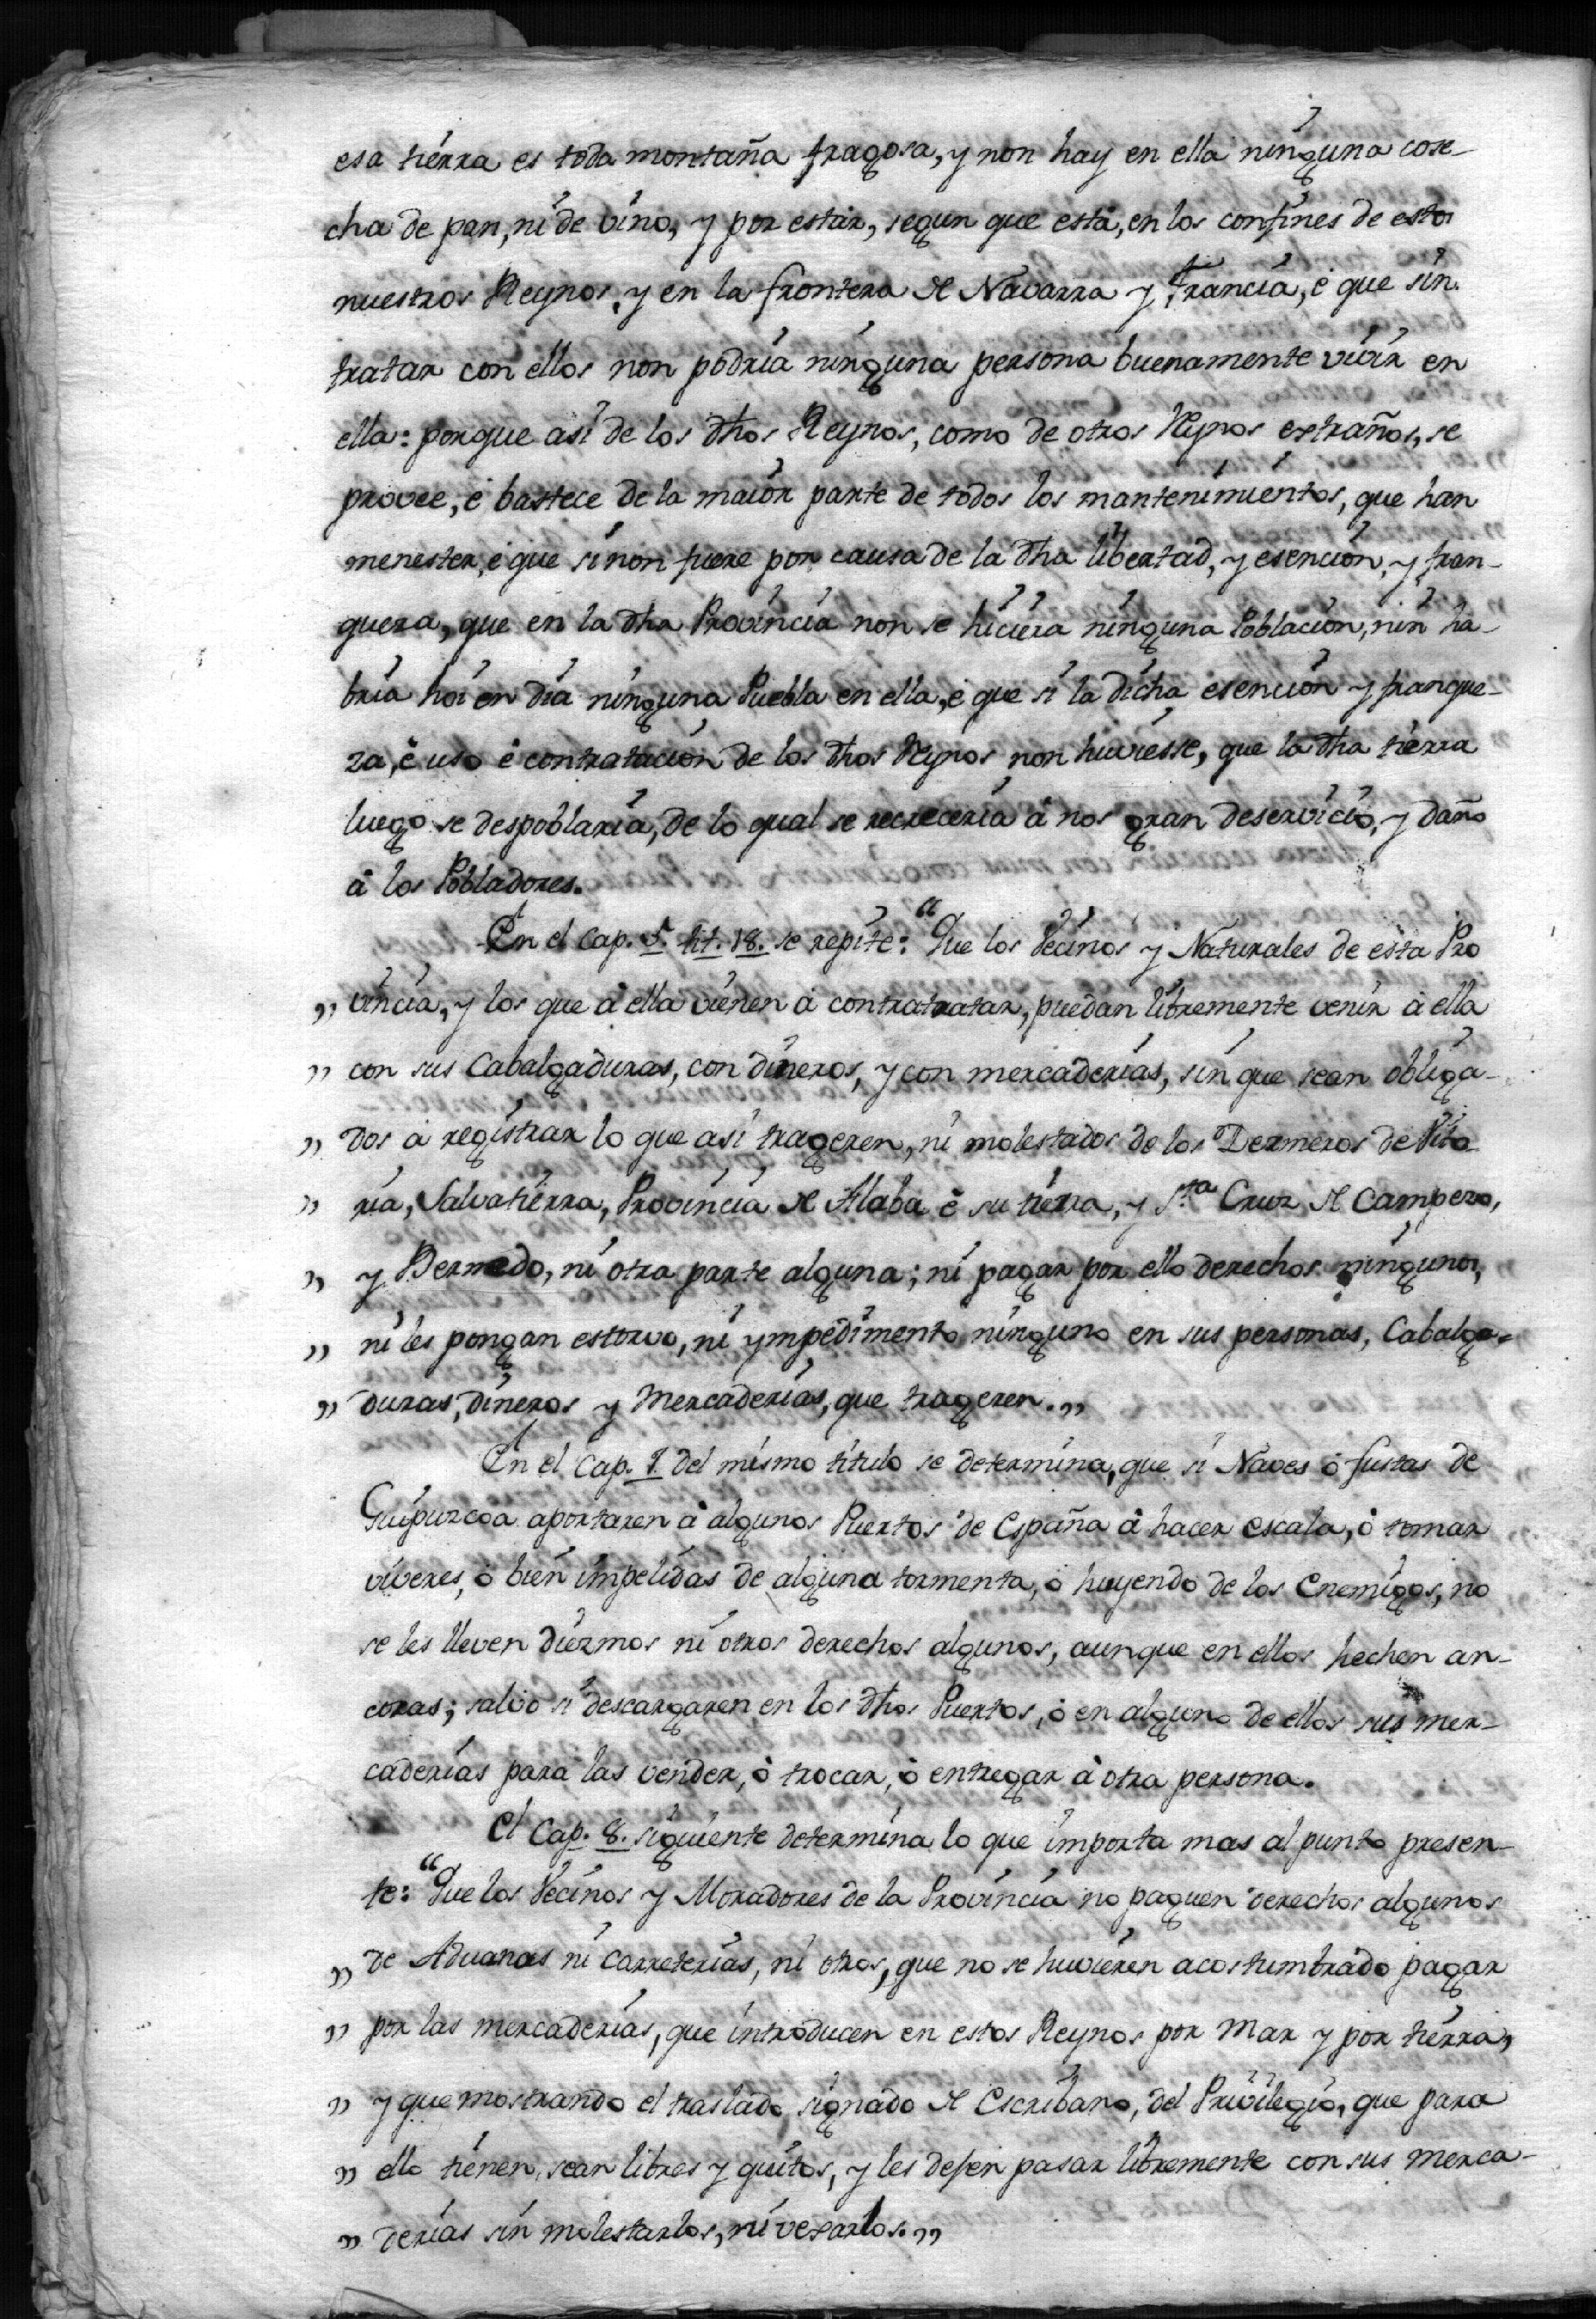 esa tierra es toda montaña fragosa, y non hay en ella ninguna cose-
cha de pan, ni de vino, y por estàr, segun que està, en los confines de estos
nuestros Reynos, y en la frontera de Navarra y Francia, è que sin
tratar con ellos non podria ninguna persona buenamente vivir en
ella: porque asi de los dhos Reynos, como de otros Reynos extraños, se
provee, è bastece de la maior parte de todos los mantenimientos, que han
menester, è que si non fuere por causa de la dha libertad, y esencion, y fran-
queza, que en la dha Provincia non se hiciera ninguna Poblacion, nin ha-
bria hoi en dia ninguna Puebla en ella, è que si la dicha esencion y franque-
za, è uso è contratacion de los dhos Reynos non huviesse, que la dha tierra
luego se despoblaria, de lo qual se recreceria à nos gran deservicio, y daño
à los Pobladores.
En el Cap. 5. tit. 18. se repite: "Que los Vecinos y Naturales de esta Pro
„ vincia, y los que à ella vienen à contratratar, puedan libremente venir à ella
„ con sus Cabalgaduras, con dineros, y con mercaderias, sin que sean obliga-
„ dos à registrar lo que asi trageren, ni molestados de los Dezmeros de Vito
„ ria, Salvatierra, Provincia de Alaba è su tierra, y S.ta Cruz de Campezo,
„ y Bernedo, ni otra parte alguna; ni pagar por ello derechos ningunos,
„ ni les pongan estorvo, ni ympedimento ninguno en sus personas, Cabalga-
„ duras, dineros y Mercaderias, que trageren.„
En el Cap. 7. del mismo titulo se determina, que si Naves ò fustas de
Guipuzcoa aportaren à algunos Puertos de España à hacer escala, ò tomar
viveres, ò bien impelidas de alguna tormenta, ò huyendo de los Enemigos, no
se les lleven diezmos ni otros derechos algunos, aunque en ellos hechen an-
coras; salvo si descargaren en los dhos Puertos, ò en alguno de ellos sus mer-
caderias para las vender, ò trocar, ò entregar à otra persona.
El Cap. 8. siguiente determina lo que importa mas al punto presen-
te: "Que los Vecinos y Moradores de la Provincia no paguen derechos algunos
„ de Aduanas ni Carreterias, ni otros, que no se huvieren acostumbrado pagar
„ por las mercaderias, que introducen en estos Reynos por Mar y por tierra,
„ y que mostrando el traslado signado de Escribano, del Privilegio, que para
„ ello tienen, sean libres y quitos, y les dejen pasar libremente con sus merca-
„ derias sin molestarlos, ni vexarlos.„